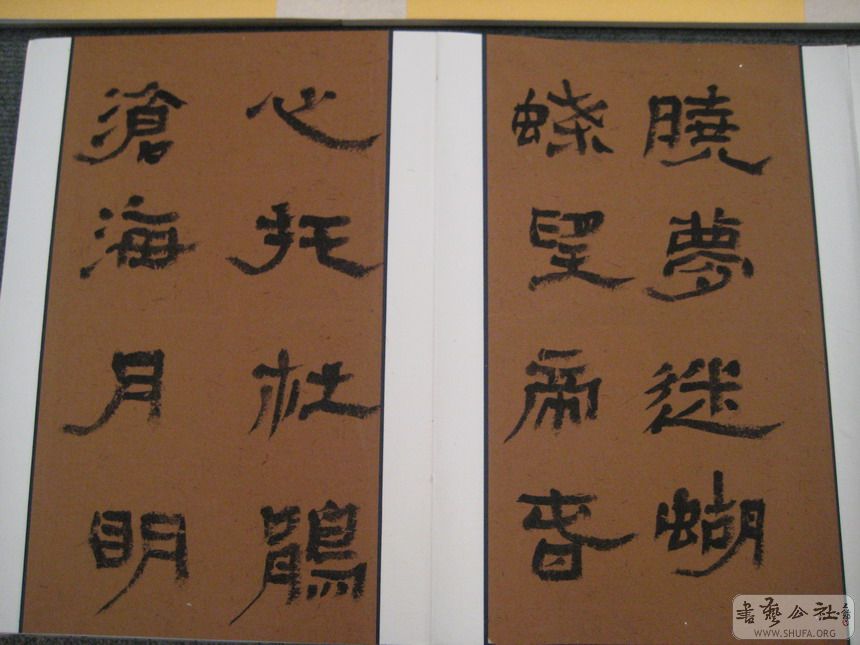 曉夢迷蝴
蝶望帝春
心托杜鵑
滄海月明
書藝公社
WWW.SHUFA.ORG